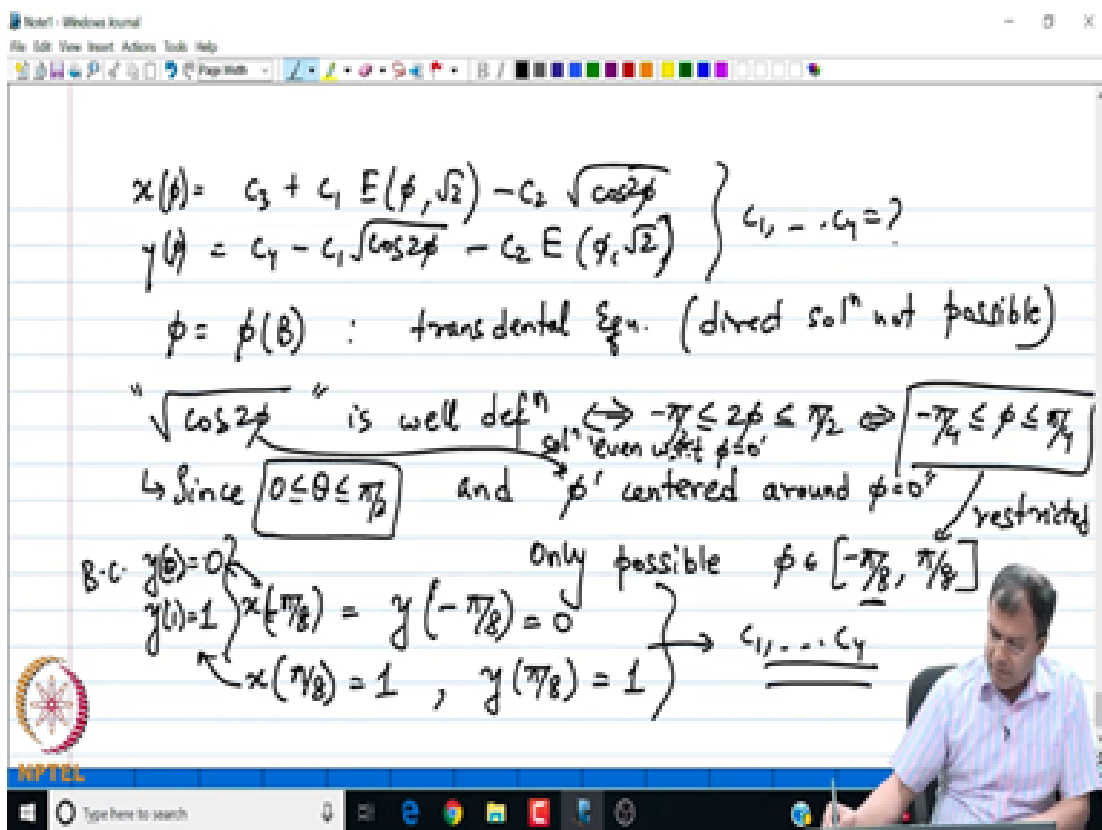 Note1 - Windows Journal
File Edit View Insert Actions Tools Help
Page Width
x(φ) = c₃ + c₁ E(φ, √2) − c₂ √cos2φ
y(φ) = c₄ − c₁ √cos2φ − c₂ E(φ, √2) } c₁, -.. c₄ = ?
φ = φ(β) : transdental Eqn. (direct solⁿ not possible)
"√cos2φ" is well defⁿ ⇔ -π/2 ≤ 2φ ≤ π/2 ⇔ -π/4 ≤ φ ≤ π/4
solⁿ 'even w.r.t φ=0'
↳ Since 0≤θ≤π/2 and 'φ' centered around φ=0"
restricted
Only possible φ ∈ [-π/8, π/8]
B.C. y(0)=0
y(1)=1 x(-π/8) = y(-π/8) = 0
x(π/8) = 1 , y(π/8) = 1 } → c₁, ... c₄
NPTEL
Type here to search